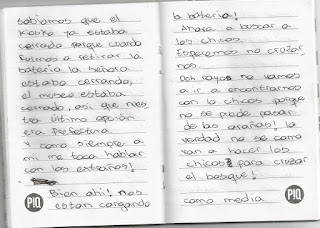 sabíamos que el
kosko ya estaba
cerrado porque cuando
fuimos a retirar la
batería la señora
estaba cerrando,
el museo estaba
cerrado, asi que nues
tra última opción
era Prefectura
Y como siempre a
mi me toca hablar
con los extraños!
Bien ahi! nos
estan cargando
PIQ
la bateria!
Ahora a buscar a
los chicos.
Esperemos no cruzar
nos.
Ooh rayos no vamos
a ir a encontrarnos
con lo chicos porque
no se puede pasar
de las arañas! la
verdad no se como
van a hacer los
chicos para cruzar
el bosque!
como media
PIQ